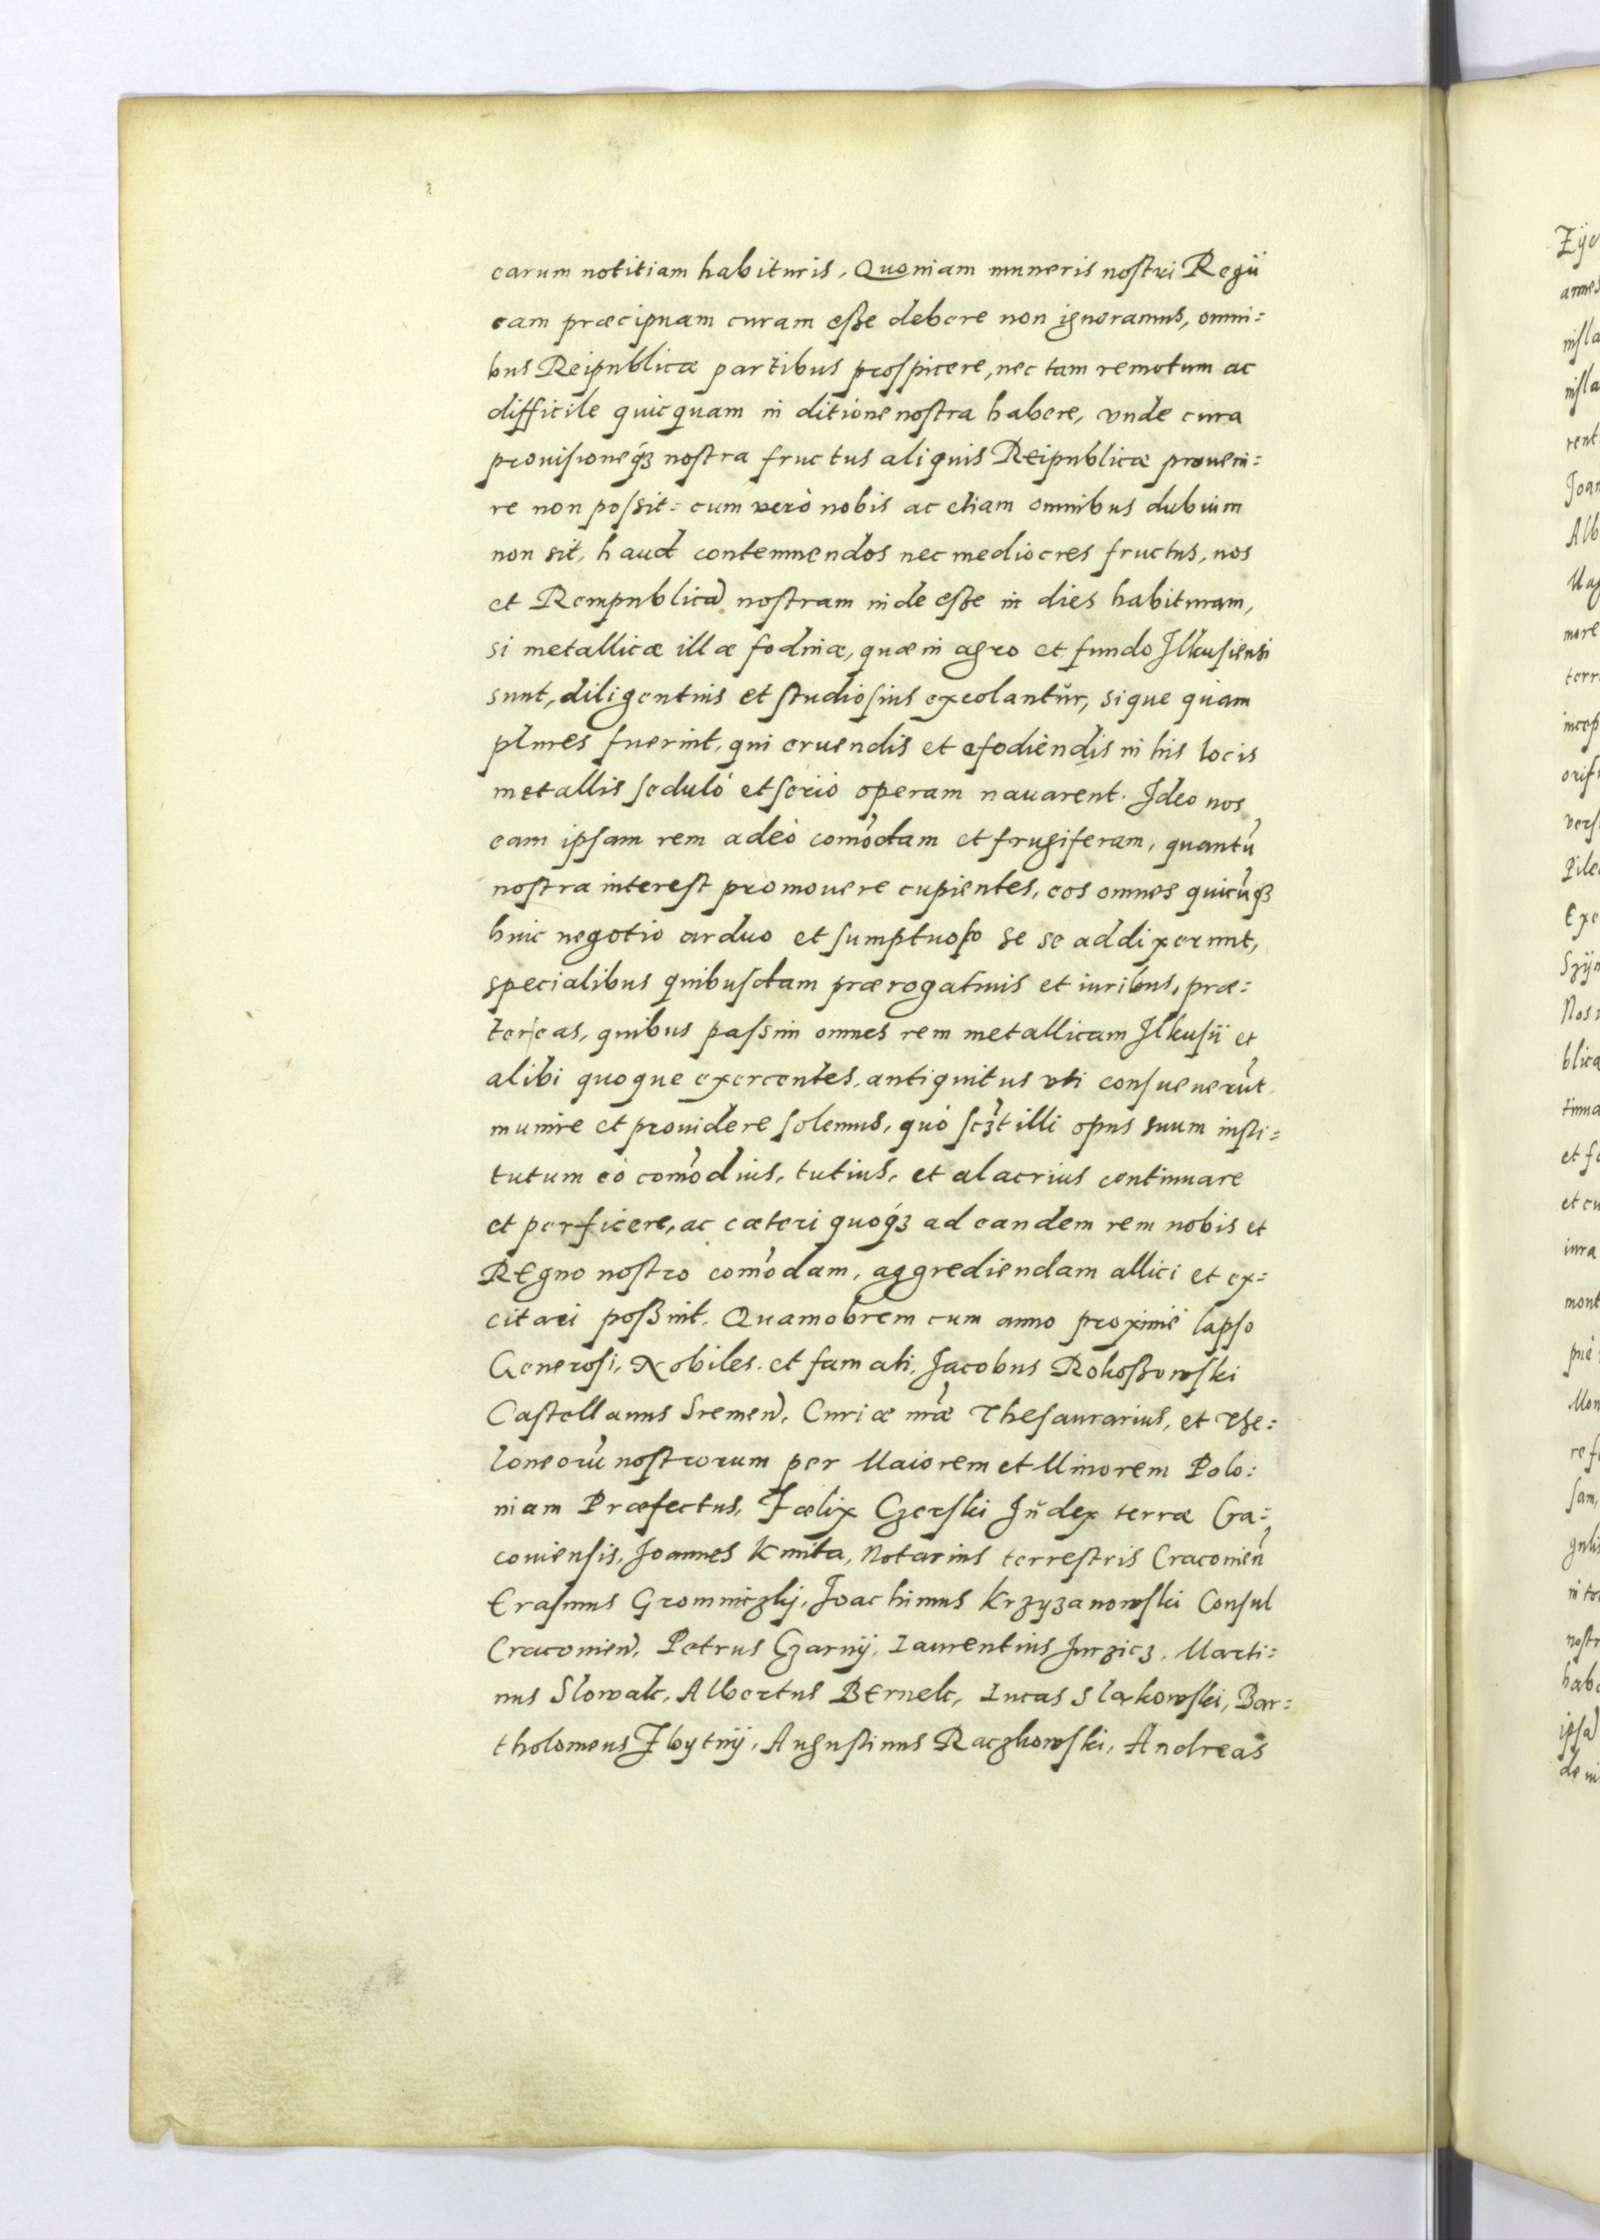 earum notitiam habituris, Quoniam muneris nostri Regii
eam præcipuam curam eße debere non ignoramus, omni=
bus Reipublicæ partibus prospicere, nec tam remotum ac
difficile quicquam in ditione nostra habere, vnde cura
prouisioneq́ꝫ nostra fructus aliquis Reipublicæ proueni=
re non possit: cum verò nobis ac etiam omnibus dubium
non sit, haud contemnendos nec mediocres fructus, nos
et Rempublicã nostram inde eße in dies habituram,
si metallicæ illæ fodinæ, quæ in agro et fundo Ilkusiensi
sunt, diligentius et studiosius excolantur, sique quam
plures fuerint, qui eruendis et efodiendis in his locis
metallis sedulò et seriò operam nauarent. Ideo nos
eam ipsam rem adeò com̃odam et frugiferam, quantũ
nostra interest promouere cupientes, eos omnes quicũqꝫ
huic negotio arduo et sumptuoso se se addixerunt,
specialibus quibusdam prærogatiuis et iuribus, præ=
tereas, quibus passim omnes rem metallicam Ilkusii et
alibi quoque exercentes, antiquitus vti consueuerũt
munire et prouidere solemus, quò scꝫt illi opus suum insti=
tutum eò com̃odius, tutius, et alacrius continuare
et perficere, ac cæteri quoq́ꝫ ad eandem rem nobis et
Regno nostro com̃odam, aggrediendam allici et ex=
citari poßint. Quamobrem cum anno proximè lapso
Generosi, Nobiles, et famati, Jacobus Rokoßowski
Castellanus Sremeñ, Curiæ nr̃æ Thesaurarius, et The=
loneorũ nostrorum per Maiorem et Minorem Polo:
niam Præfectus, Fælix Czerski Iudex terræ Cra=
couiensis, Joannes Kmita, Notarius terrestris Cracouieñ
Erasmus Gromniczkij, Joachimus Krzyzanowski Consul
Cracouieñ, Petrus Czarnij, Laurentius Jurzicz, Marti=
nus Slowak, Albertus Bernek, Lucas Slaxkowski, Bar=
tholomeus Zbytnij, Augustinus Raczkowski, Andreas